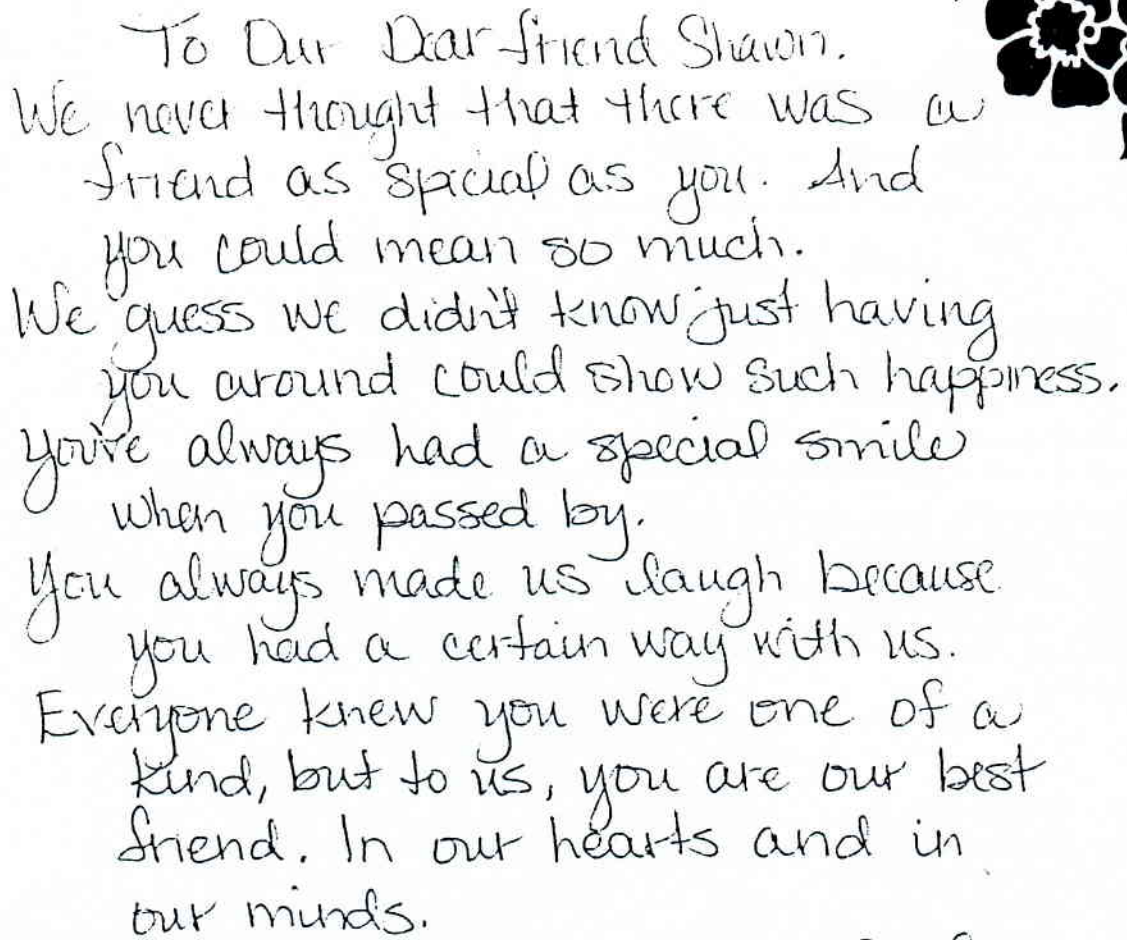 To Our Dear friend Shawn.
We never thought that there was a
friend as special as you. And
you could mean so much.
We guess we didn't know just having
you around could show such happiness.
You've always had a special smile
when you passed by.
You always made us laugh because
you had a certain way with us.
Everyone knew you were one of a
kind, but to us, you are our best
friend. In our hearts and in
our minds.